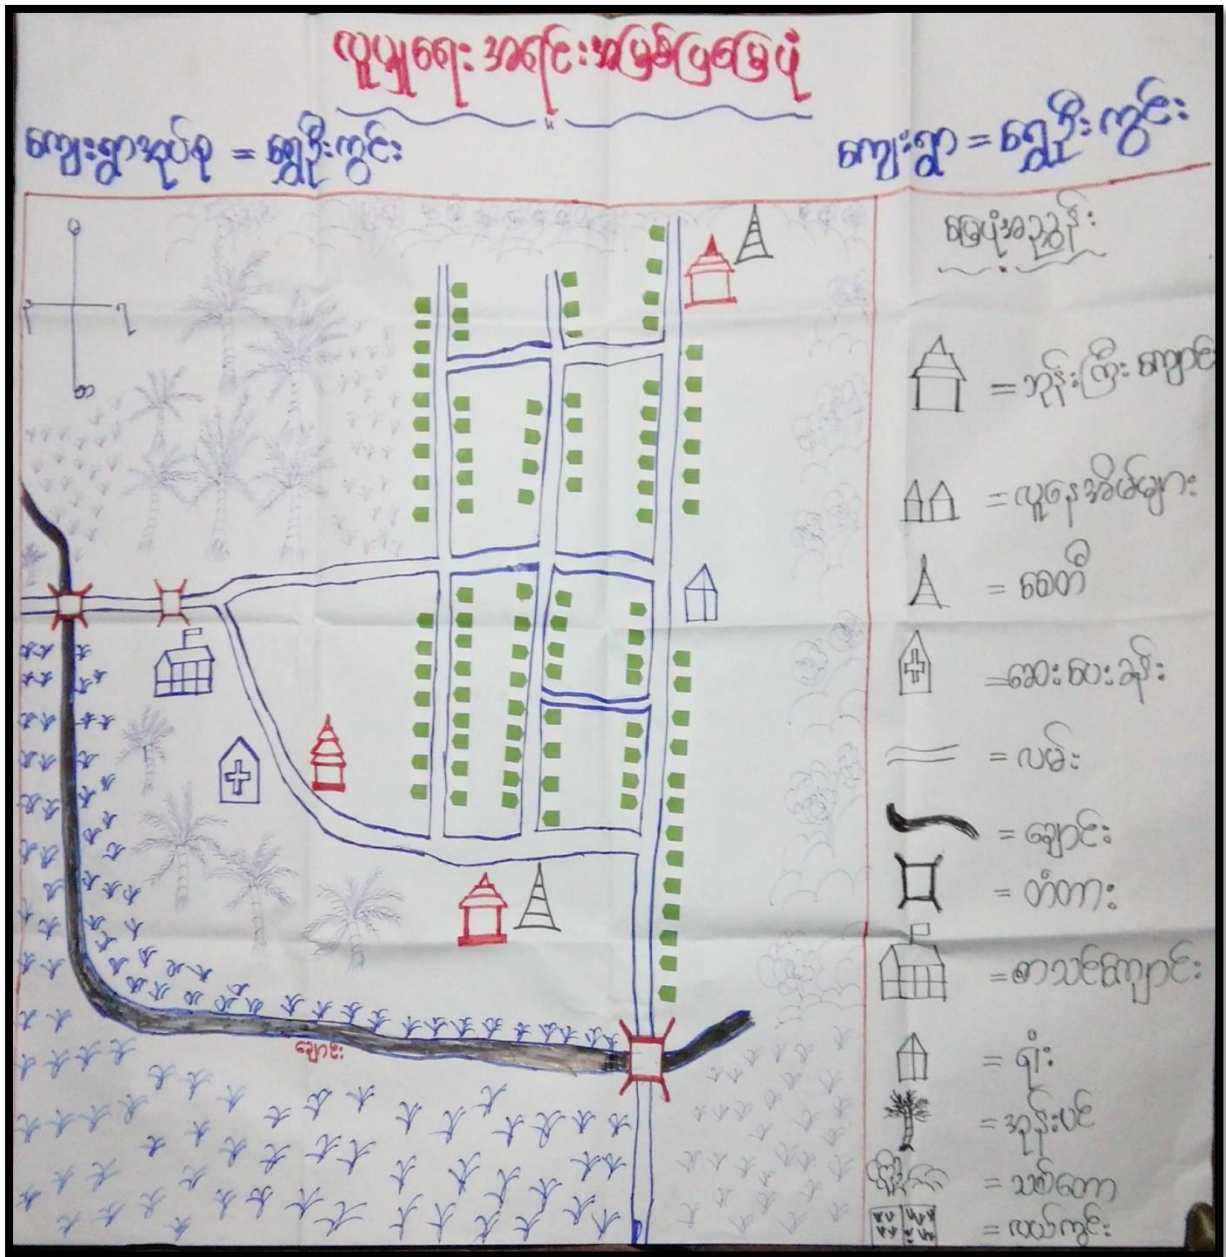 လူမှုရေး အရင်းအမြစ်ပြမြေပုံ
ကျေးရွာအုပ်စု = ရွှေဦးကွင်း
ကျေးရွာ = ရွှေဦးကွင်း
မြေပုံအညွှန်း
= ဘုန်းကြီးကျောင်း
= လူနေအိမ်များ
= စေတီ
= ဆေးပေးခန်း
= လမ်း
= ချောင်း
= တံတား
= စာသင်ကျောင်း
= ရုံး
= အုန်းပင်
= သစ်တော
= လယ်ကွင်း
မ
ရ
တ
ချောင်း